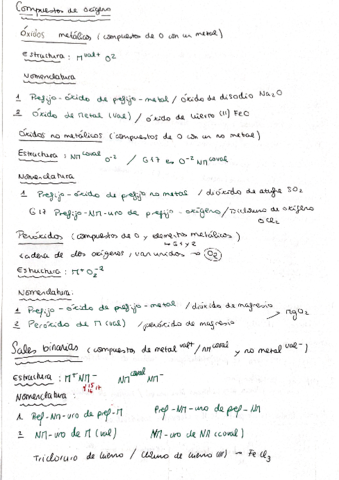 Compuestos de oxígeno
Óxidos metálicos (compuestos de O con un metal)
Estructura: M^val+ O^-2
Nomenclatura
1 Prefijo-óxido de prefijo-metal / óxido de disodio Na2O
2 Óxido de Metal (val) / óxido de hierro (II) FeO
Óxidos no metálicos (compuestos de O con un no metal)
Estructura: NM^coval O^-2 / G17 O^-2 NM^coval
Nomenclatura
1 Prefijo-óxido de prefijo no metal / dióxido de azufre SO2
G17 Prefijo-NM-uro de prefijo-oxígeno / Dicloruro de oxígeno
OCl2
Peróxidos (compuestos de O y elementos metálicos)
→ G1 y 2
cadena de dos oxígenos, van unidos → O2
Estructura: M^+ O2^-2
Nomenclatura:
1 Prefijo-óxido de prefijo-metal / dióxido de magnesio
→ MgO2
2 Peróxido de M (val) / peróxido de magnesio
Sales binarias (compuestos de metal^val+ / NM^coval y no metal^val-)
Estructura: M^+ NM^- NM^coval NM^-
15 16 17
Nomenclatura:
1. Pref-NM-uro de pref-M Pref-NM-uro de pref-NM
2 NM-uro de M (val) NM-uro de NM (coval)
Tricloruro de hierro / Cloruro de hierro (III) → FeCl3